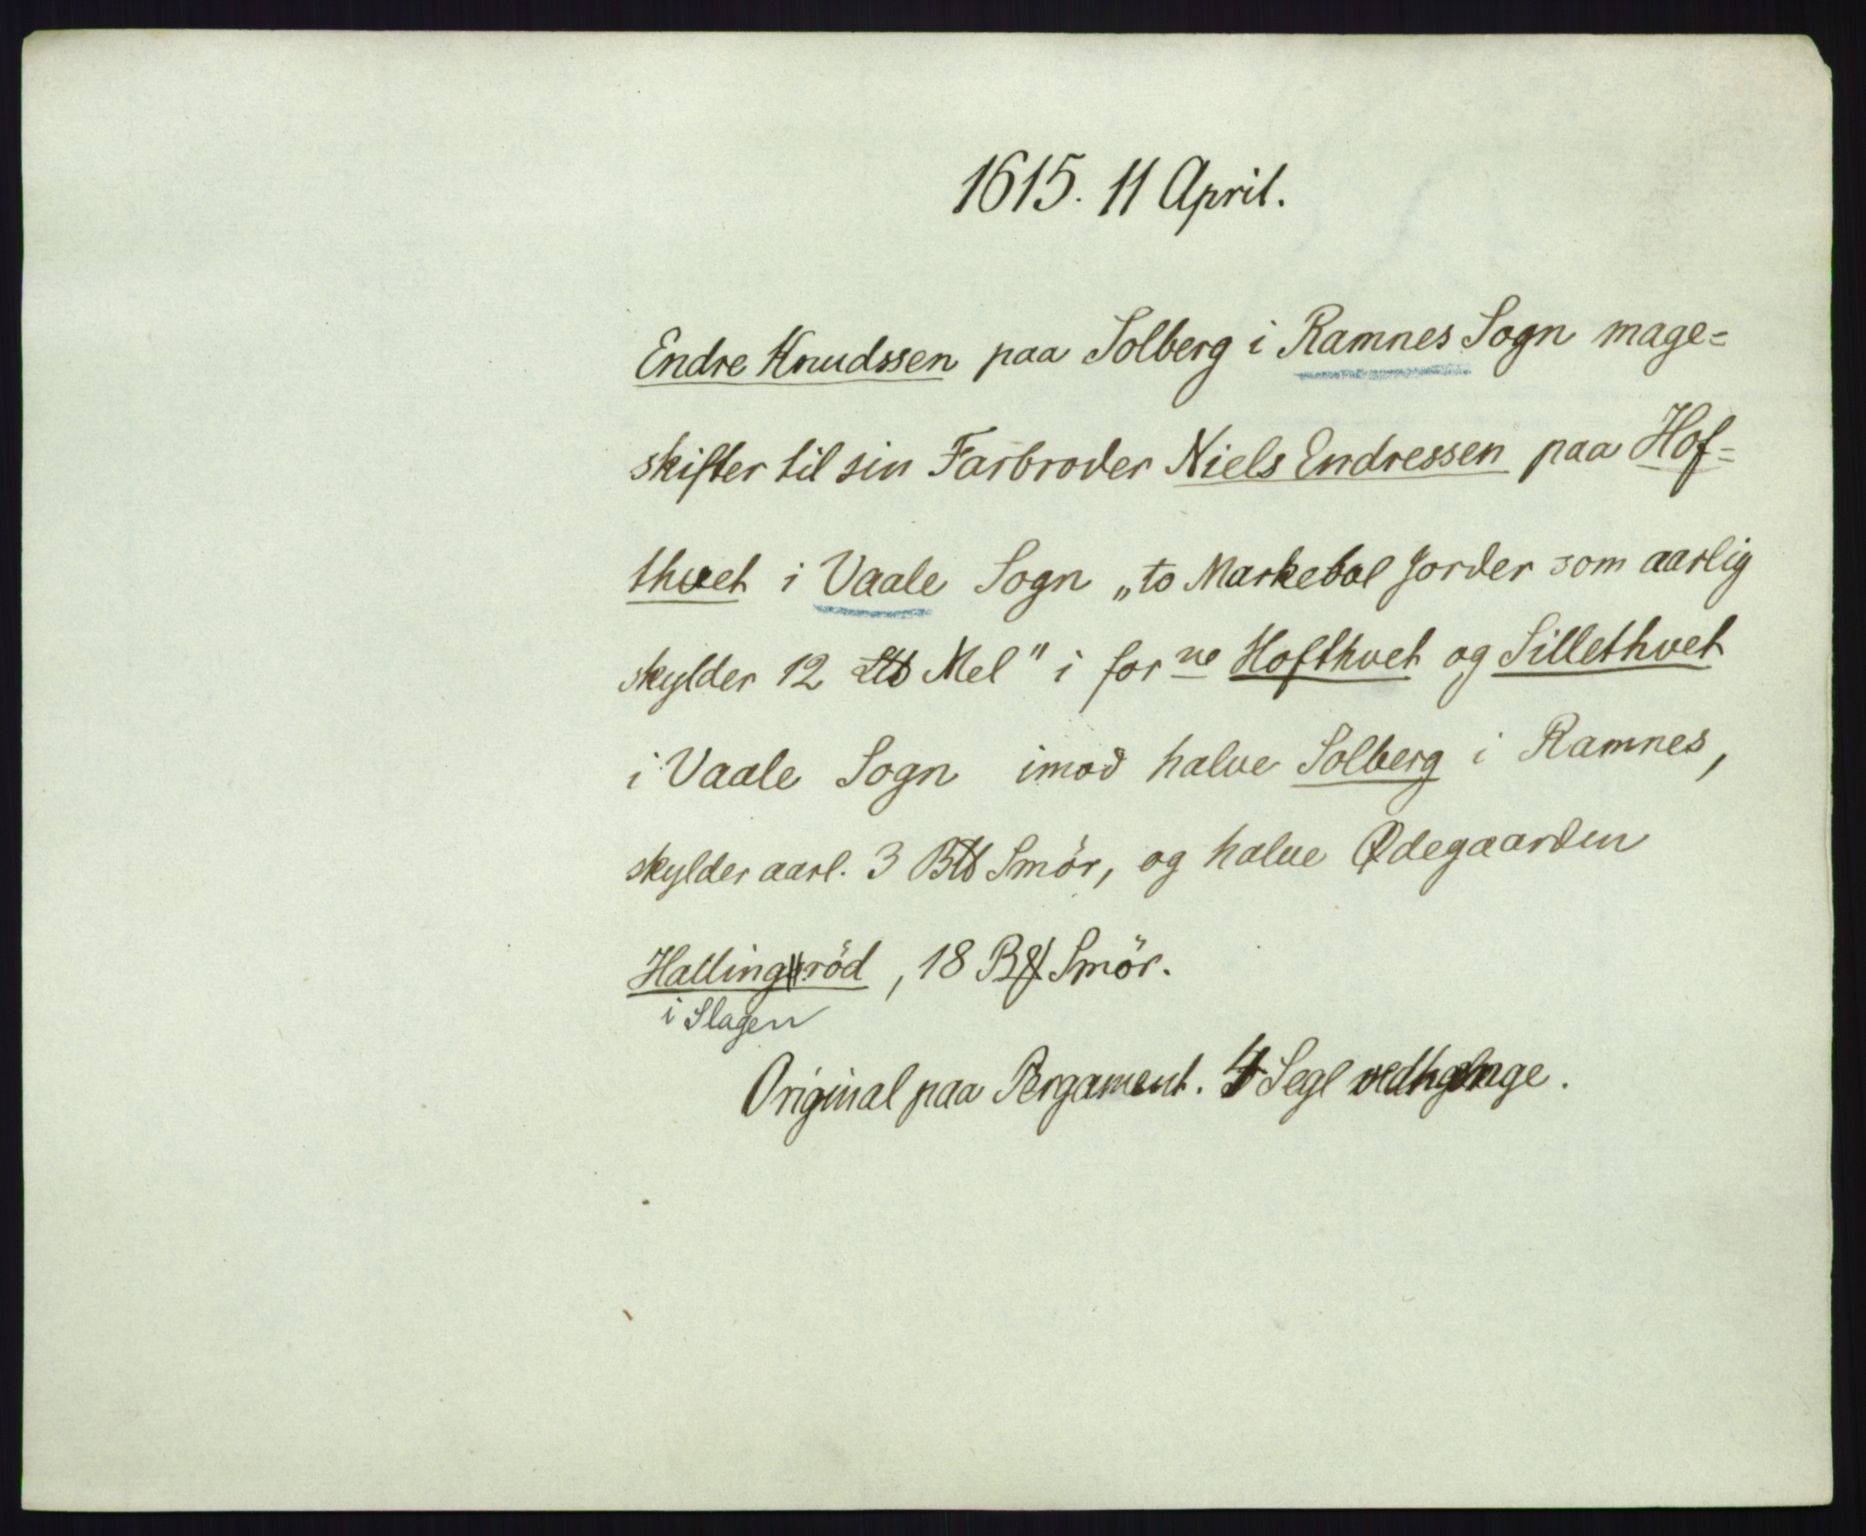 1615. 11 April.
Endre Knudssen paa Solberg i Ramnes Sogn mage=
skifter til sin Farbroder Niels Endressen paa Hof=
thvet i Vaale Sogn „to Markebol Jorder som aarlig
skylder 12 L℔ Mel" i forne Hofthvet og Sillethvet
i Vaale Sogn imod halve Solberg i Ramnes,
skylder aarl. 3 B℔ Smör, og halve Ødegaarden
Hallingröd, 18 B Smör.
i Slagen
Original paa Pergament. 4 Segl vedhænge.